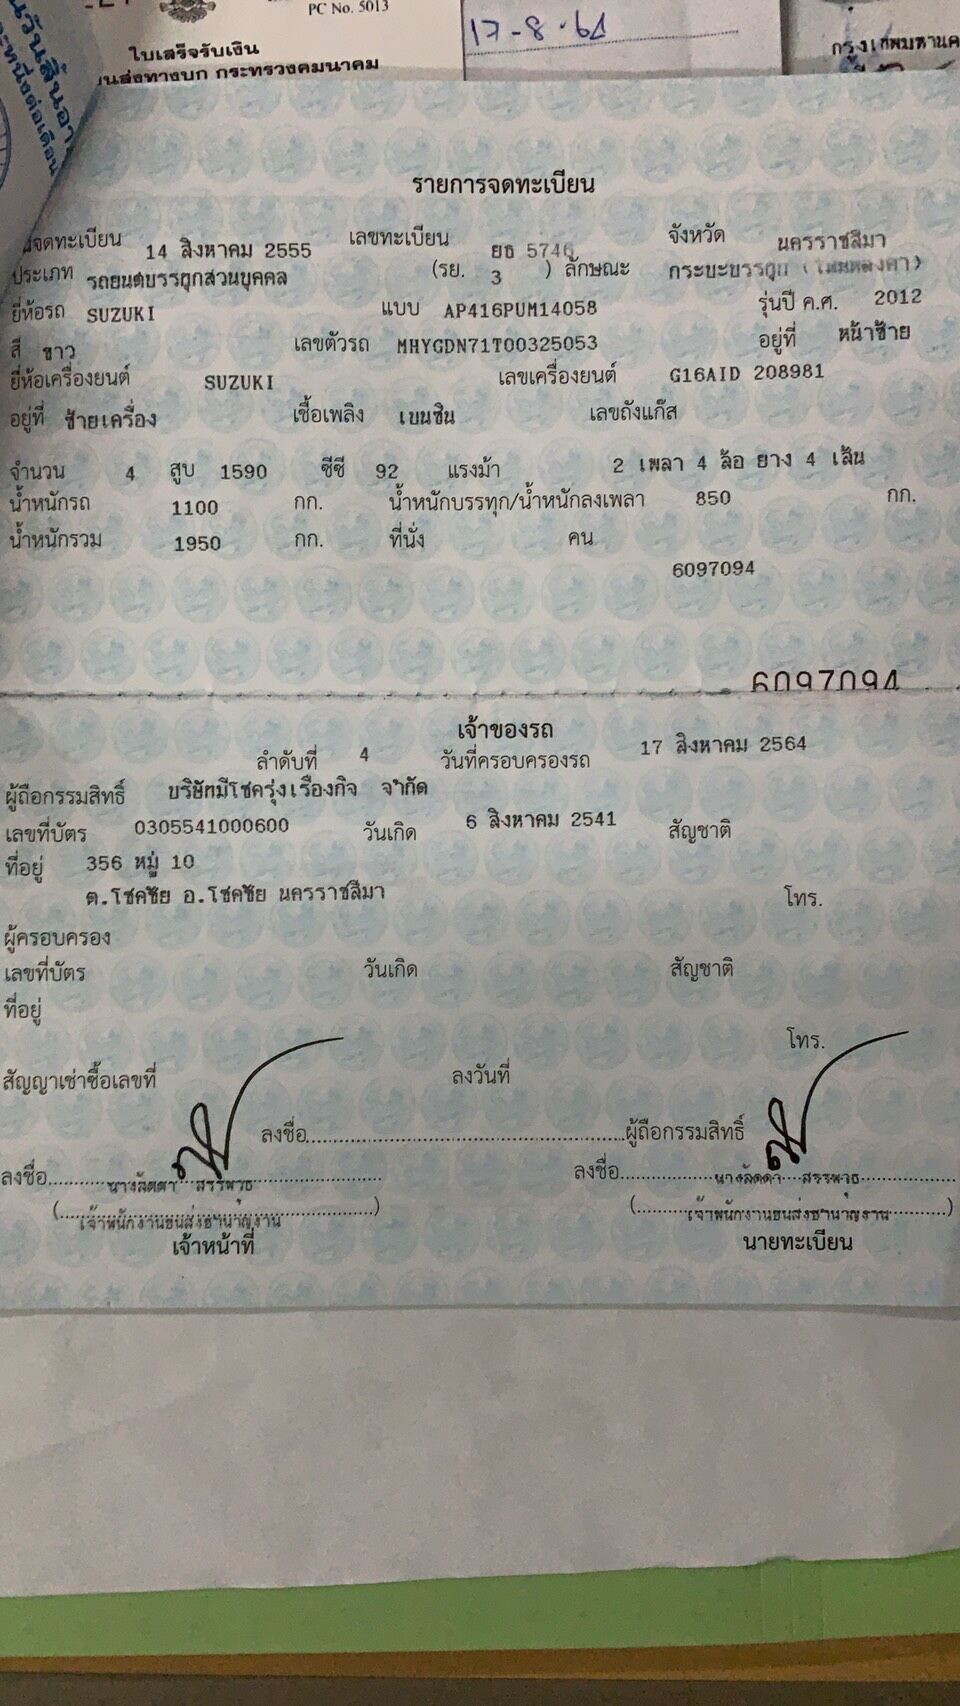 PC No. 5013
17-8-64
ใบเสร็จรับเงิน
นส่งทางบก กระทรวงคมนาคม
กรุงเทพมหานค
รายการจดทะเบียน
จดทะเบียน 14 สิงหาคม 2555 เลขทะเบียน ยธ 5746 จังหวัด นครราชสีมา
ประเภท รถยนต์บรรทุกส่วนบุคคล (รย. 3 ) ลักษณะ กระบะบรรทุก (ไม่มีหลังคา)
ยี่ห้อรถ SUZUKI แบบ AP416PUM14058 รุ่นปี ค.ศ. 2012
สี ขาว เลขตัวรถ MHYGDN71T00325053 อยู่ที่ หน้าซ้าย
ยี่ห้อเครื่องยนต์ SUZUKI เลขเครื่องยนต์ G16AID 208981
อยู่ที่ ซ้ายเครื่อง เชื้อเพลิง เบนซิน เลขถังแก๊ส
จำนวน 4 สูบ 1590 ซีซี 92 แรงม้า 2 เพลา 4 ล้อ ยาง 4 เส้น
น้ำหนักรถ 1100 กก. น้ำหนักบรรทุก/น้ำหนักลงเพลา 850 กก.
น้ำหนักรวม 1950 กก. ที่นั่ง คน
6097094
6097094
เจ้าของรถ
ลำดับที่ 4 วันที่ครอบครองรถ 17 สิงหาคม 2564
ผู้ถือกรรมสิทธิ์ บริษัทมีโชครุ่งเรืองกิจ จำกัด
เลขที่บัตร 0305541000600 วันเกิด 6 สิงหาคม 2541 สัญชาติ
ที่อยู่ 356 หมู่ 10
ต.โชคชัย อ.โชคชัย นครราชสีมา โทร.
ผู้ครอบครอง
เลขที่บัตร วันเกิด สัญชาติ
ที่อยู่
โทร.
สัญญาเช่าซื้อเลขที่ ลงวันที่
ลงชื่อ ผู้ถือกรรมสิทธิ์
ลงชื่อ นางลัดดา สรรพาวุธ ลงชื่อ นางลัดดา สรรพาวุธ
(เจ้าพนักงานขนส่งชำนาญงาน) (เจ้าพนักงานขนส่งชำนาญงาน)
เจ้าหน้าที่ นายทะเบียน